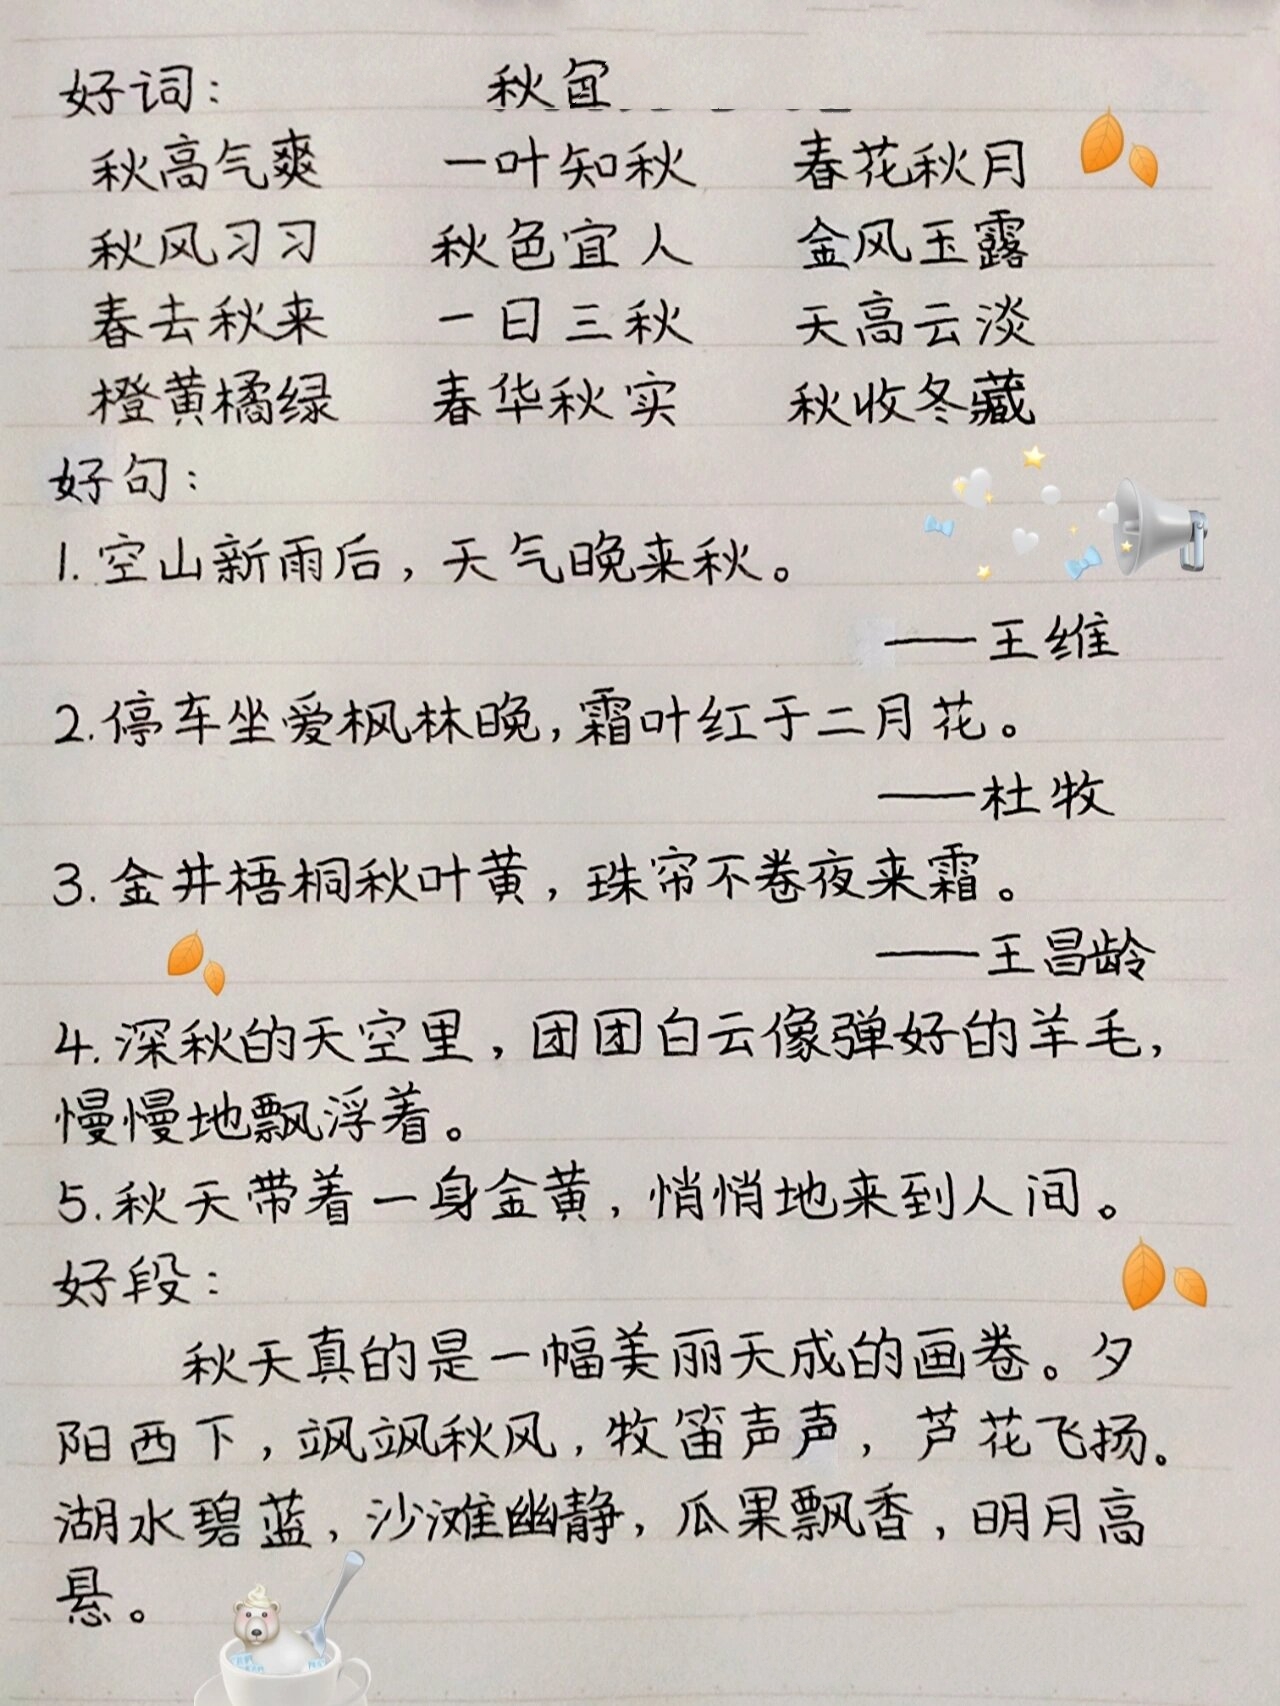 好词: 秋宜
秋高气爽 一叶知秋 春花秋月
秋风习习 秋色宜人 金风玉露
春去秋来 一日三秋 天高云淡
橙黄橘绿 春华秋实 秋收冬藏
好句:
1.空山新雨后,天气晚来秋。
——王维
2.停车坐爱枫林晚,霜叶红于二月花。
——杜牧
3.金井梧桐秋叶黄,珠帘不卷夜来霜。
——王昌龄
4.深秋的天空里,团团白云像弹好的羊毛,
慢慢地飘浮着。
5.秋天带着一身金黄,悄悄地来到人间。
好段:
秋天真的是一幅美丽天成的画卷。夕
阳西下,飒飒秋风,牧笛声声,芦花飞扬。
湖水碧蓝,沙滩幽静,瓜果飘香,明月高
悬。